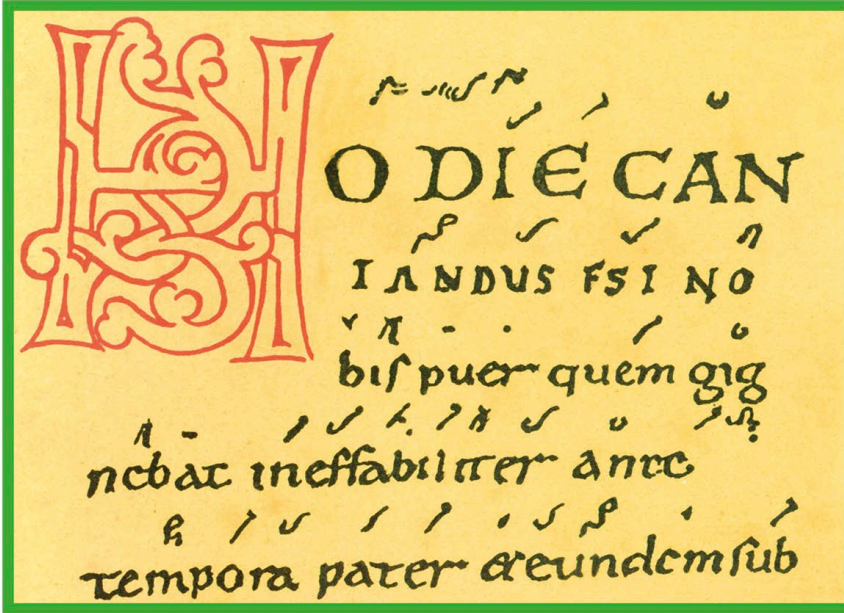 HODIE CAN
TANDUS EST NO
biſ puer quem gig
nebat ineffabiliter ante
tempora pater & eundem ſub